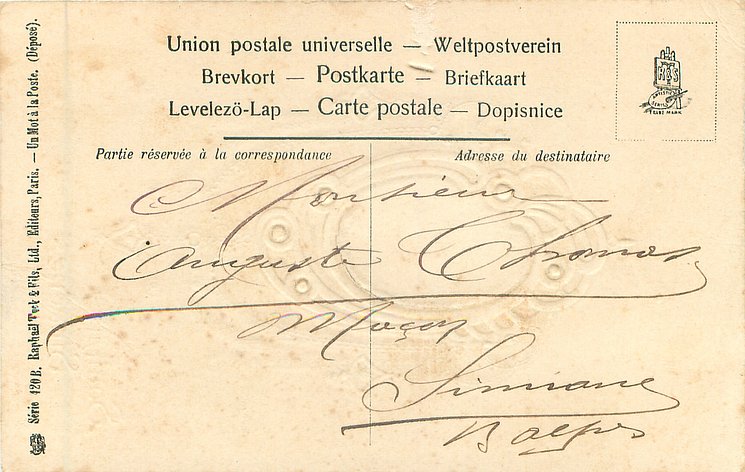 Union postale universelle — Weltpostverein
Brevkort — Postkarte — Briefkaart
Levelezö-Lap — Carte postale — Dopisnice
Partie réservée à la correspondance
Adresse du destinataire
Monsieur
Auguste Thomas
Maçon
Simiane
B alpes
Série 120 B. Raphaël Tuck & Fils, Ltd., Editeurs, Paris. — Un Mot à la Poste. (Déposé).